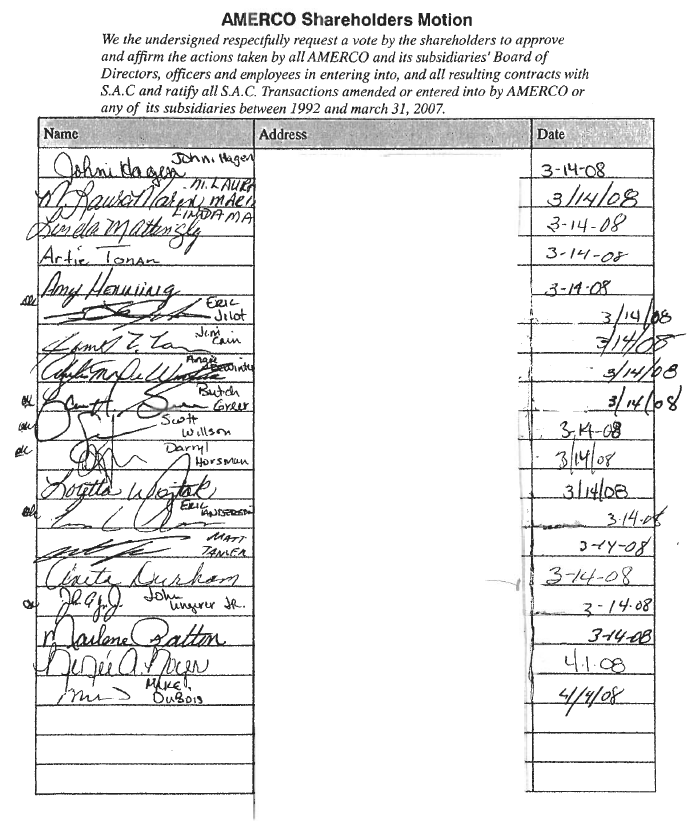 AMERCO Shareholders Motion
We the undersigned respectfully request a vote by the shareholders to approve
and affirm the actions taken by all AMERCO and its subsidiaries' Board of
Directors, officers and employees in entering into, and all resulting contracts with
S.A.C and ratify all S.A.C. Transactions amended or entered into by AMERCO or
any of its subsidiaries between 1992 and march 31, 2007.
Name Address Date
Johni Hagen Johni Hagen 3-14-08
M. LAURA MARI 3/14/08
Linda Mattingly LINDA MA 3-14-08
Artie Tonan 3-14-08
Amy Henning 3-14-08
ERIC Jilot 3/14/08
Jim Cain 3/14/08
Angie 3/14/08
Butch Greer 3/14/08
Scott Willson 3-14-08
Darryl Horsman 3/14/08
Loretta 3/14/08
ERIC ANDERSEN 3-14-08
MATT TANLER 3-14-08
Anita Durham 3-14-08
John Jr. 3-14-08
Marlene 3-14-08
Renée A. 4-1-08
MIKE DUBOIS 4/4/08